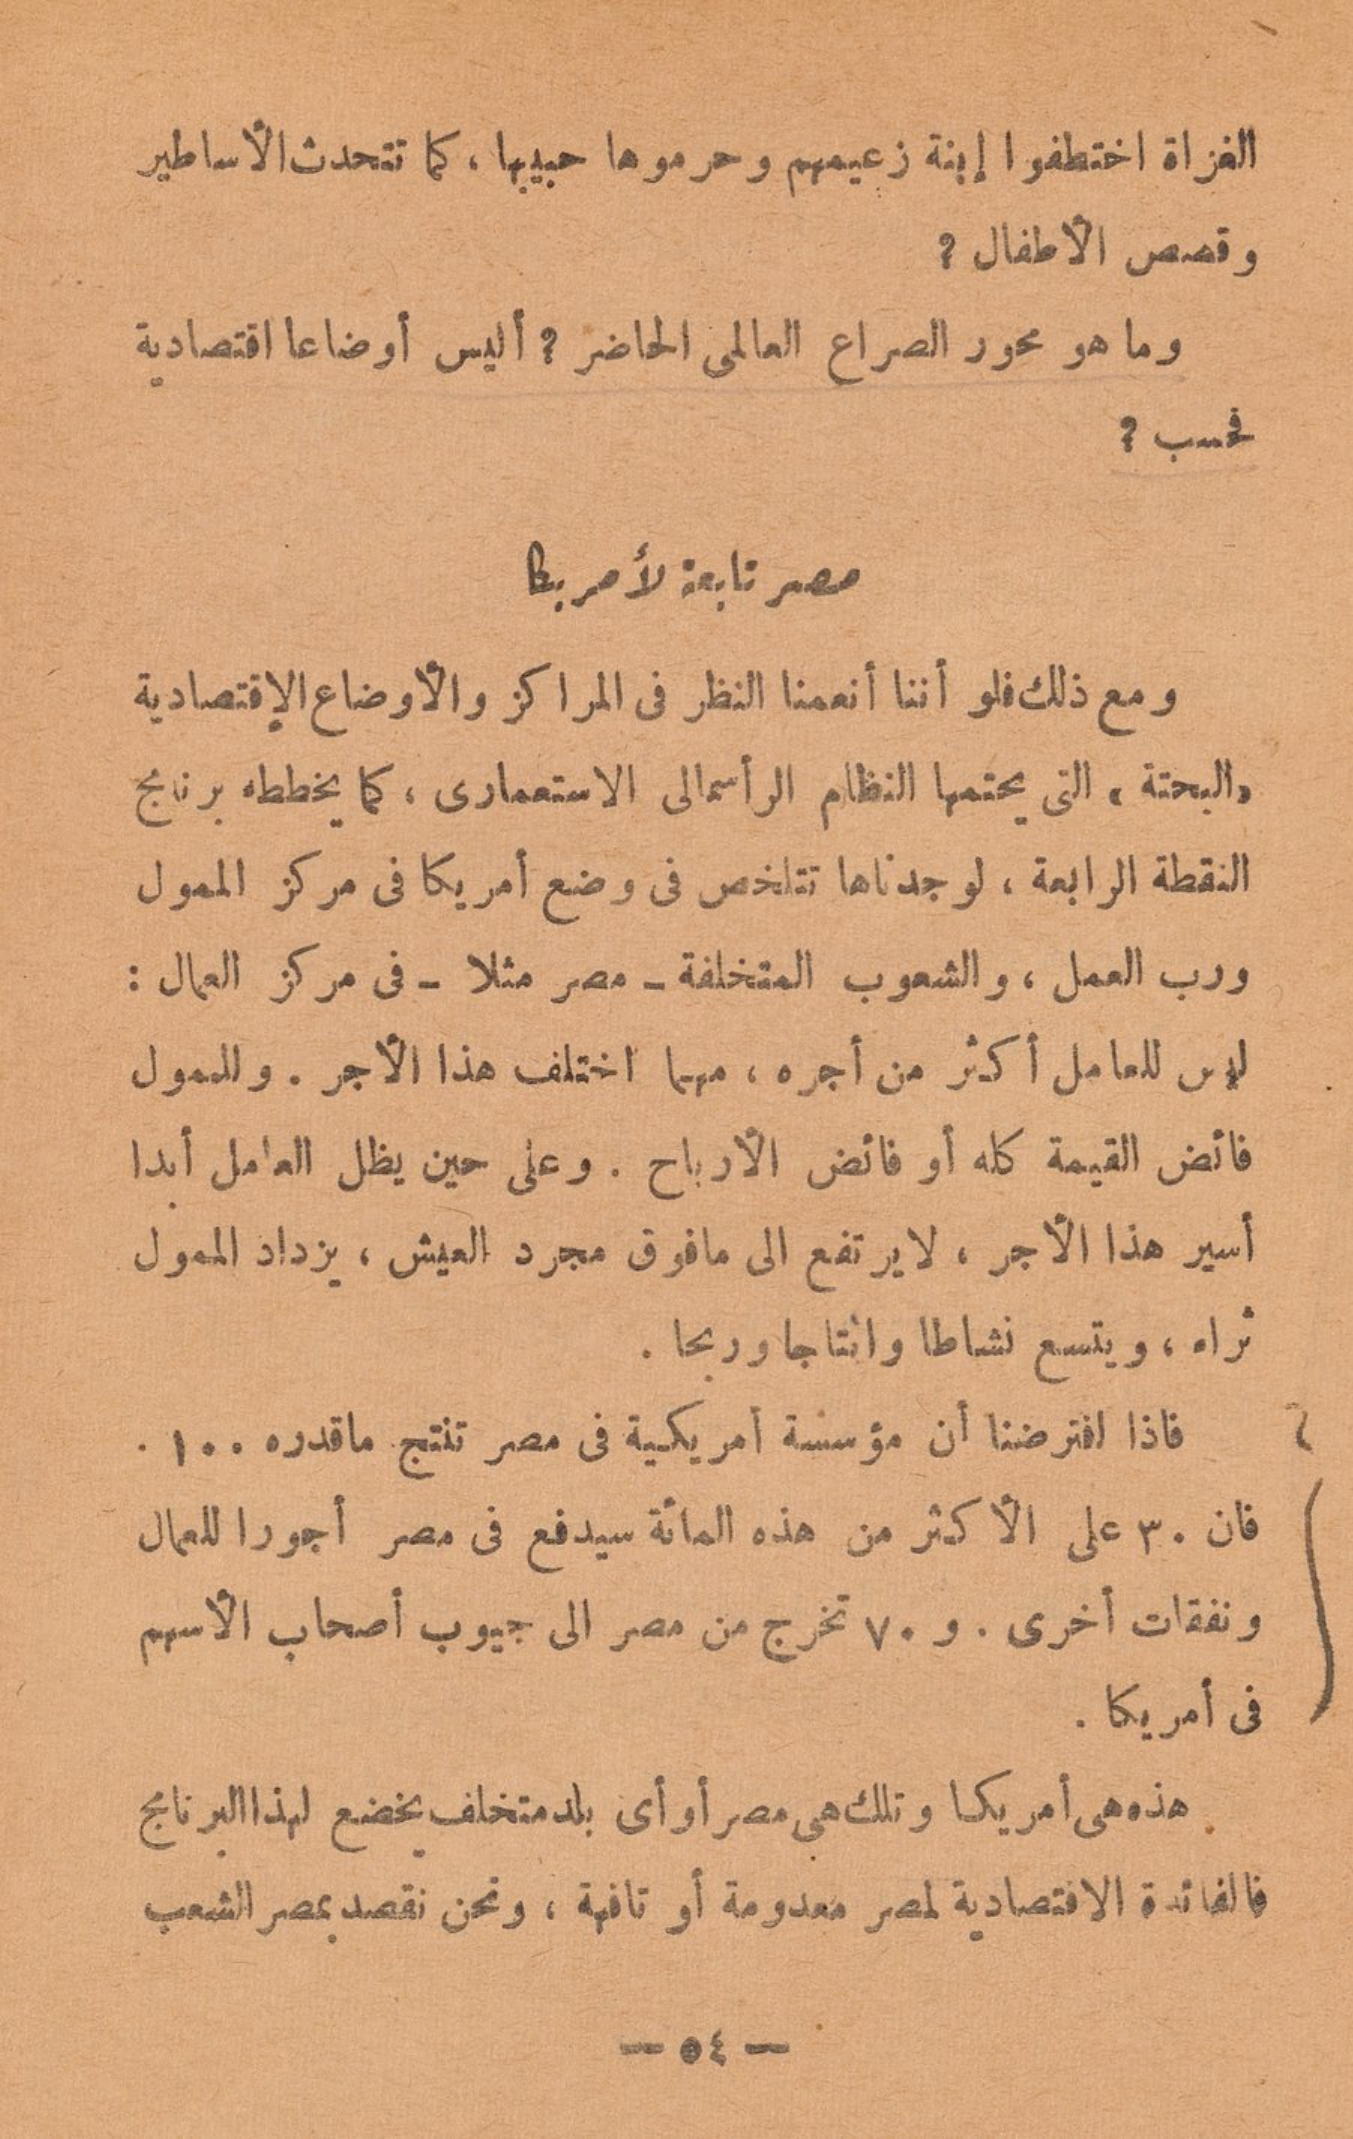 الغزاة اختطفوا إبنة زعيمهم وحرموها حبيبها ، كما تتحدث الأساطير
وقصص الأطفال ؟
وما هو محور الصراع العالمى الحاضر ؟ أليس أوضاعا اقتصادية
فحسب ؟
مصر تابعة لأمريكا
ومع ذلك فلو أننا أنعمنا النظر فى المراكز والأوضاع الإقتصادية
«البحتة» التى يحتمها النظام الرأسمالى الاستعمارى ، كما يخططه برنامج
النقطة الرابعة ، لوجدناها تتلخص فى وضع أمريكا فى مركز الممول
ورب العمل ، والشعوب المتخلفة ـ مصر مثلا ـ فى مركز العمال :
ليس للعامل أكثر من أجره ، مهما اختلف هذا الأجر . وللممول
فائض القيمة كله أو فائض الأرباح . وعلى حين يظل العامل أبدا
أسير هذا الأجر ، لايرتفع الى مافوق مجرد العيش ، يزداد الممول
ثراء ، ويتسع نشاطا وانتاجا وربحا .
فاذا افترضنا أن مؤسسة أمريكية فى مصر تنتج ماقدره ١٠٠ .
فان ٣٠ على الأكثر من هذه المائة سيدفع فى مصر أجورا للعمال
ونفقات أخرى . و ٧٠ تخرج من مصر الى جيوب أصحاب الأسهم
فى أمريكا .
هذه هى أمريكا وتلك هى مصر أو أى بلد متخلف يخضع لهذا البرنامج
فالفائدة الاقتصادية لمصر معدومة أو تافهة ، ونحن نقصد بمصر الشعب
— ٥٤ —